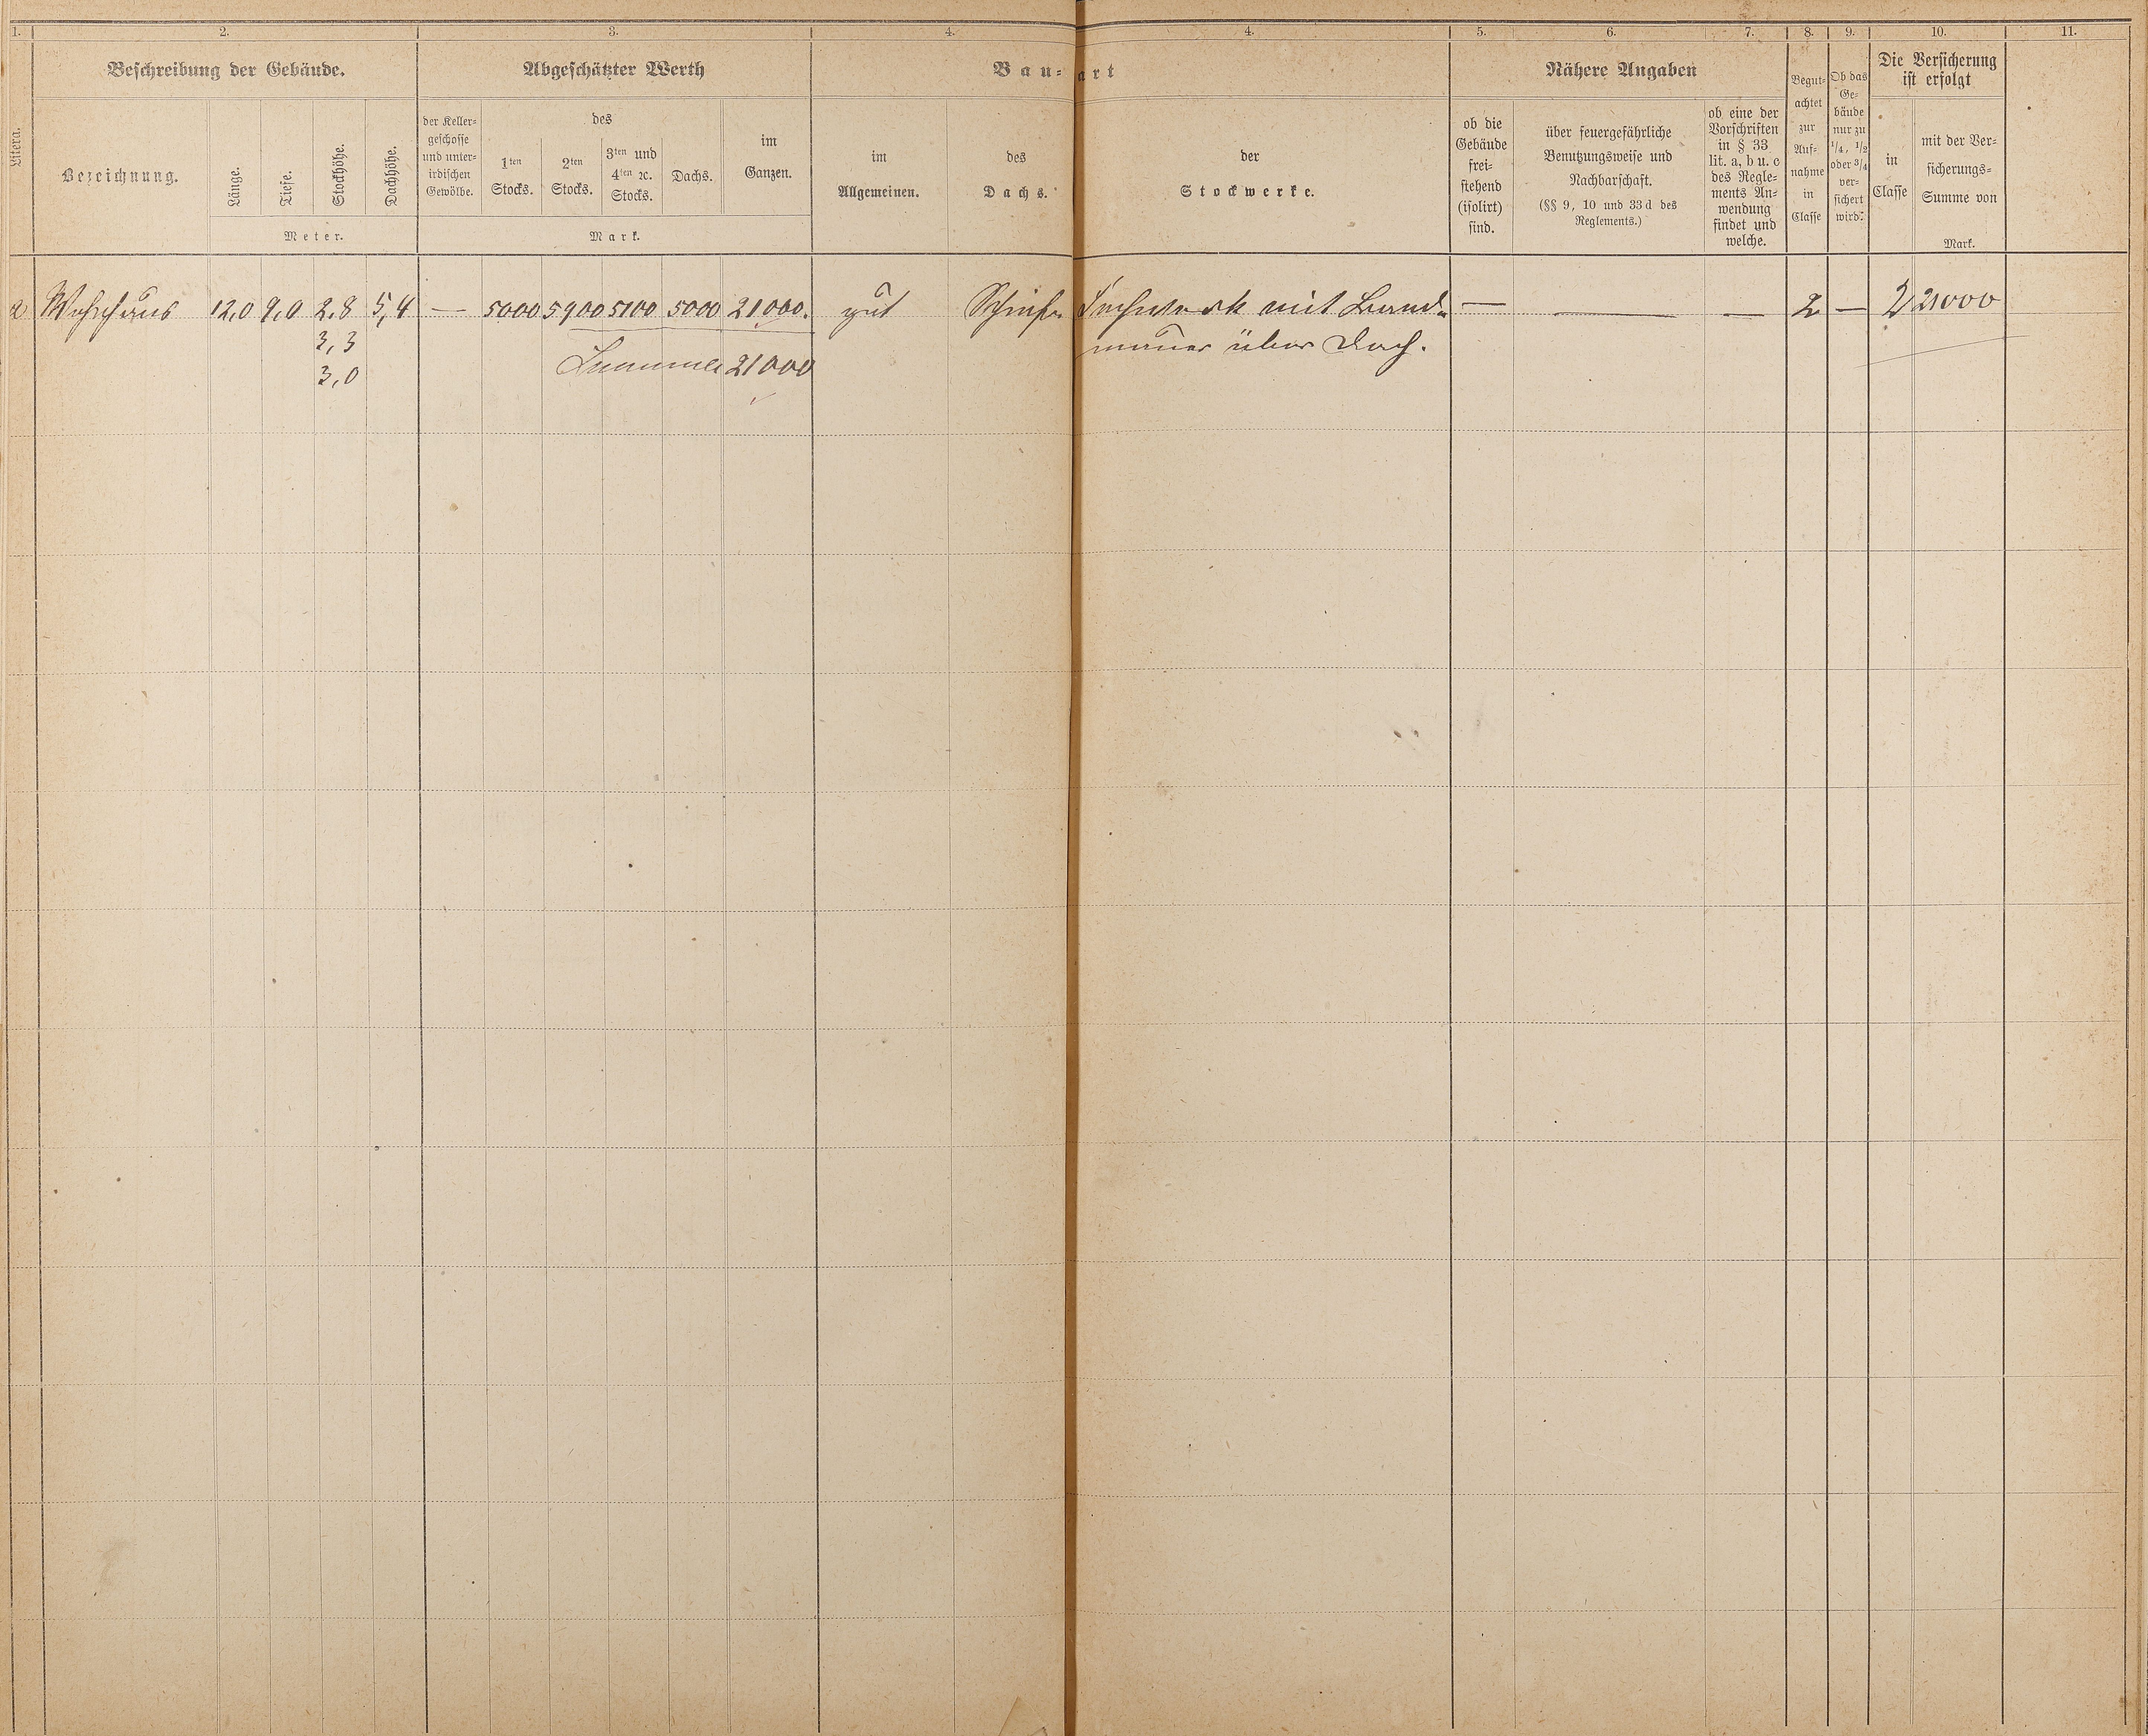 1. 2. 3. 4. 4. 5. 6. 7. 8. 9. 10. 11.
Litera.
Beschreibung der Gebäude.
Bezeichnung.
Länge.
Tiefe.
Stockhöhe.
Dachhöhe.
Meter.
Abgeschätzter Werth
der Keller-
geschosse
und unter-
irdischen
Gewölbe.
des
1ten
Stocks.
2ten
Stocks.
3ten und
4ten ꝛc.
Stocks.
Dachs.
im
Ganzen.
Mark.
Bau-art
im
Allgemeinen.
des
Dachs.
der
Stockwerke.
Nähere Angaben
ob die
Gebäude
frei-
stehend
(isolirt)
sind.
über feuergefährliche
Benutzungsweise und
Nachbarschaft.
(§§ 9, 10 und 33d des
Reglements.)
ob eine der
Vorschriften
in § 33
lit. a, b u. c
des Regle-
ments An-
wendung
findet und
welche.
Begut-
achtet
zur
Auf-
nahme
in
Classe
Ob das
Ge-
bäude
nur zu
1/4, 1/2
oder 3/4
ver-
sichert
wird?
Die Versicherung
ist erfolgt
in
Classe
mit der Ver-
sicherungs-
Summe von
Mark.
a Wohnhaus 12,0 9,0 2,8 5,4 — 5000 5900 5100 5000 21000. gut Schiefer Fachwerk mit Brand- — — — 2 — 2 21000
3,3 mauer über Dach.
3,0 Summa 21000